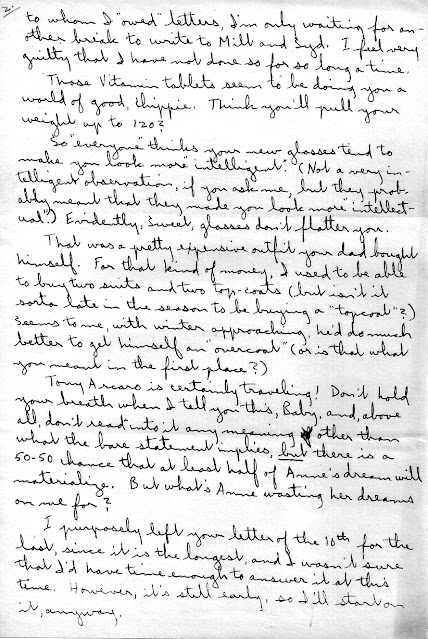 2.
to whom I "owed" letters, I'm only waiting for an-
other break to write to Milt and Syd. I feel very
guilty that I have not done so for so long a time.
Those Vitamin tablets seem to be doing you a
world of good, Chippie. Think you'll pull your
weight up to 120?
So "everyone" thinks your new glasses tend to
make you look more "intelligent". (Not a very in-
telligent observation, if you ask me, but they prob-
ably meant that they made you look more "intellect-
ual".) Evidently, Sweet, glasses don't flatter you.
That was a pretty expensive outfit your dad bought
himself. For that kind of money, I used to be able
to buy two suits and two top-coats (but isn't it
sorta late in the season to be buying a "topcoat"?)
Seems to me, with winter approaching, he'd do much
better to get himself an "overcoat" (or is that what
you meant in the first place?)
Tony Arcaro is certainly traveling! Don't hold
your breath when I tell you this, Baby, and, above
all, don't read into it any meaning other than
what the bare statement implies, but there is a
50-50 chance that at least half of Anne's dream will
materialize. But what's Anne wasting her dreams
on me for?
I purposely left your letter of the 10th for the
last, since it is the longest, and I wasn't sure
that I'd have time enough to answer it at this
time. However, it's still early, so I'll start on
it, anyway.